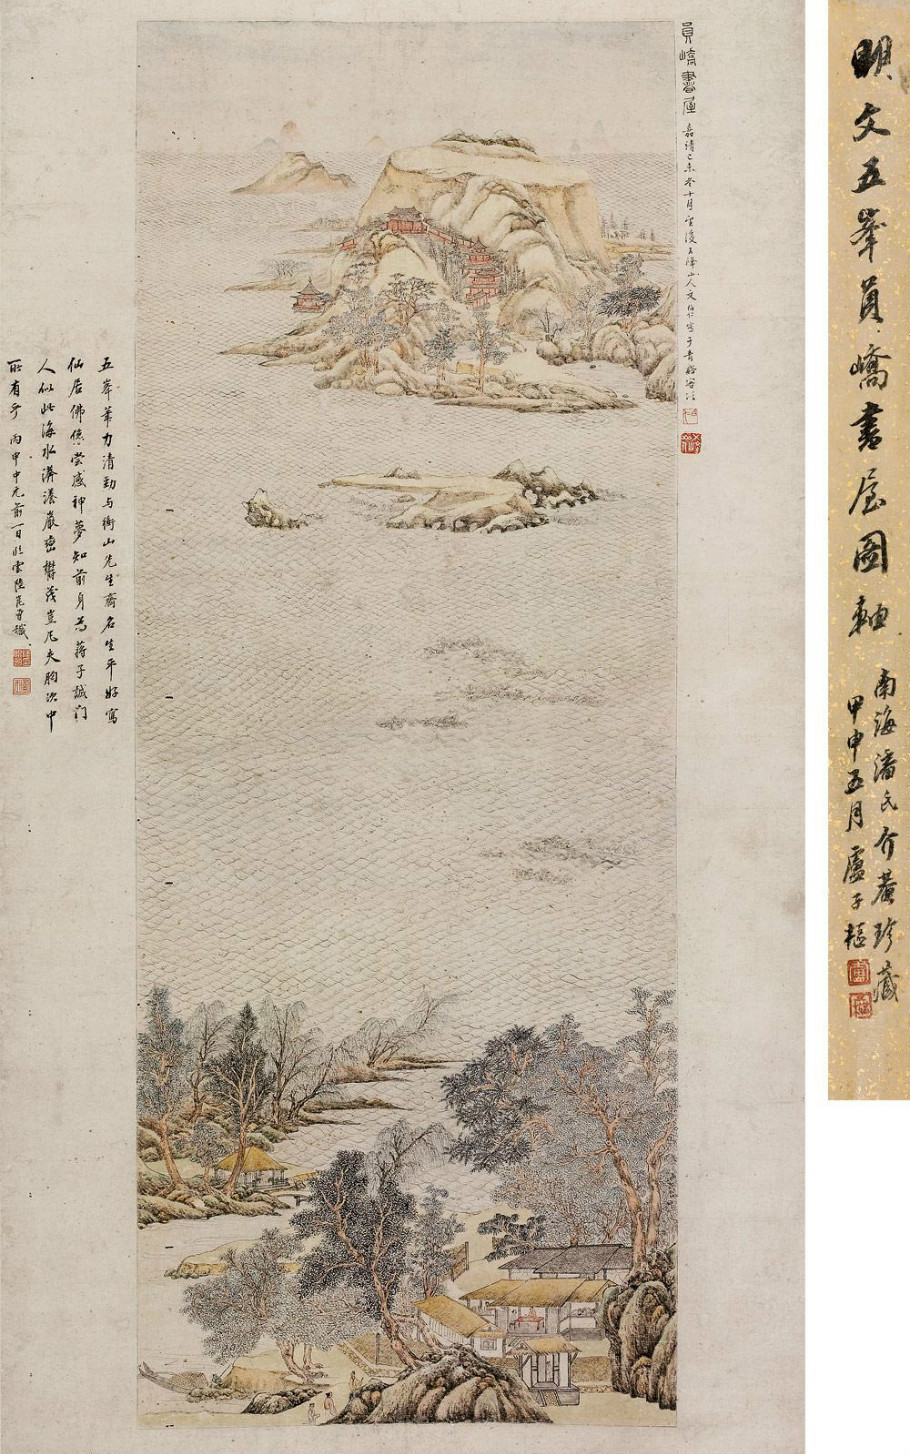 明文五峯員嶠書屋圖軸
南海潘氏介盦珍藏
甲申五月盧子樞
員嶠書屋 嘉靖己未冬十月望後五峰山人文伯仁寫于青谿客次
五峯筆力清勁与衡山先生齊名生平好寫
仙居佛像尝感神夢知前身為蔣子誠门
人似此海水滉漾巖巒欝茂豈凡夫胸次中
所有乎 丙申中元前一日